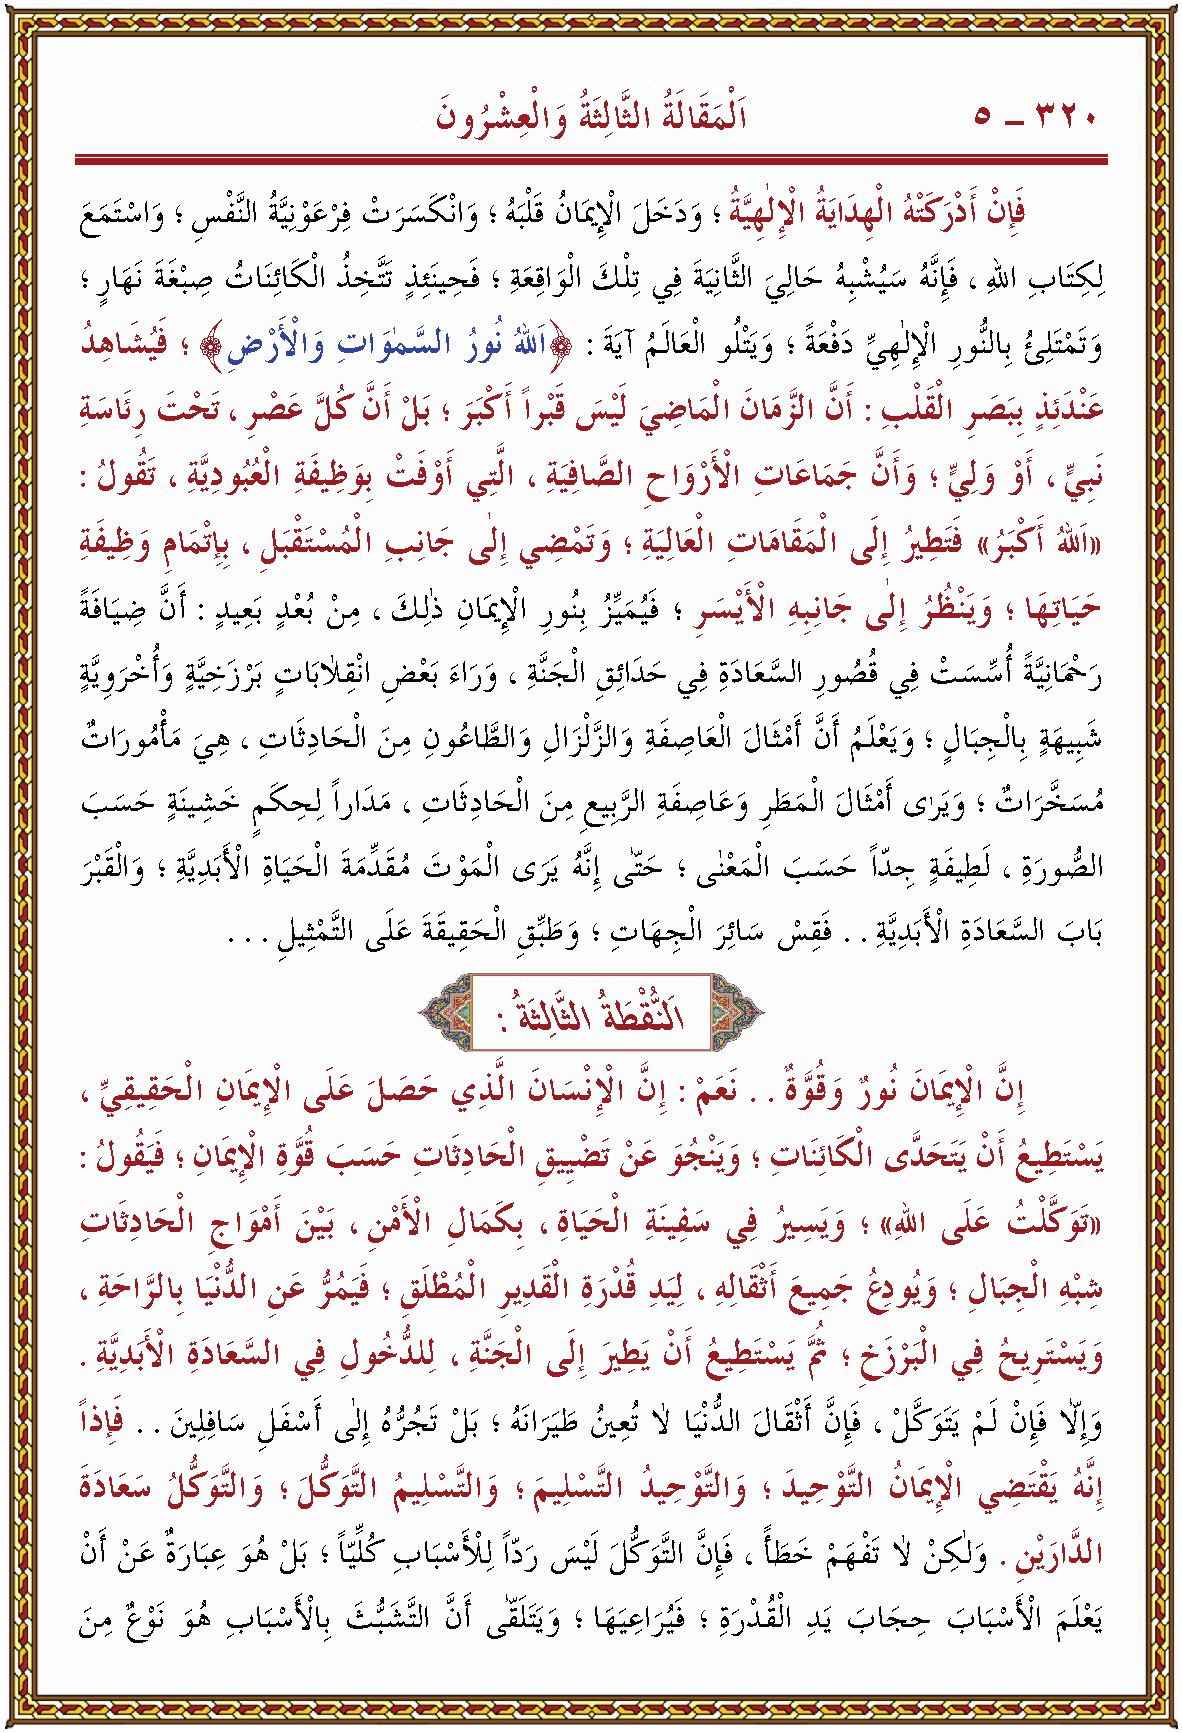 ٣٢٠ ـ ٥ اَلْمَقَالَةُ الثَّالِثَةُ وَالْعِشْرُونَ
فَإِنْ أَدْرَكَتْهُ الْهِدَايَةُ الْإِلٰهِيَّةُ ؛ وَدَخَلَ الْإِيمَانُ قَلْبَهُ ؛ وَانْكَسَرَتْ فِرْعَوْنِيَّةُ النَّفْسِ ؛ وَاسْتَمَعَ
لِكِتَابِ اللهِ ، فَإِنَّهُ سَيُشْبِهُ حَالِيَ الثَّانِيَةَ فِي تِلْكَ الْوَاقِعَةِ ؛ فَحِينَئِذٍ تَتَّخِذُ الْكَائِنَاتُ صِبْغَةَ نَهَارٍ ؛
وَتَمْتَلِئُ بِالنُّورِ الْإِلٰهِيِّ دَفْعَةً ؛ وَيَتْلُو الْعَالَمُ آيَةَ : ﴿اَللهُ نُورُ السَّمٰوَاتِ وَالْأَرْضِ﴾ ؛ فَيُشَاهِدُ
عَنْدَئِذٍ بِبَصَرِ الْقَلْبِ : أَنَّ الزَّمَانَ الْمَاضِيَ لَيْسَ قَبْراً أَكْبَرَ ؛ بَلْ أَنَّ كُلَّ عَصْرٍ ، تَحْتَ رِئَاسَةِ
نَبِيٍّ ، أَوْ وَلِيٍّ ؛ وَأَنَّ جَمَاعَاتِ الْأَرْوَاحِ الصَّافِيَةِ ، الَّتِي أَوْفَتْ بِوَظِيفَةِ الْعُبُودِيَّةِ ، تَقُولُ :
«اَللهُ أَكْبَرُ» فَتَطِيرُ إِلَى الْمَقَامَاتِ الْعَالِيَةِ ؛ وَتَمْضِي إِلٰى جَانِبِ الْمُسْتَقْبَلِ ، بِإِتْمَامِ وَظِيفَةِ
حَيَاتِهَا ؛ وَيَنْظُرُ إِلٰى جَانِبِهِ الْأَيْسَرِ ؛ فَيُمَيِّزُ بِنُورِ الْإِيمَانِ ذٰلِكَ ، مِنْ بُعْدٍ بَعِيدٍ : أَنَّ ضِيَافَةً
رَحْمَانِيَّةً أُسِّسَتْ فِي قُصُورِ السَّعَادَةِ فِي حَدَائِقِ الْجَنَّةِ ، وَرَاءَ بَعْضِ انْقِلَابَاتٍ بَرْزَخِيَّةٍ وَأُخْرَوِيَّةٍ
شَبِيهَةٍ بِالْجِبَالِ ؛ وَيَعْلَمُ أَنَّ أَمْثَالَ الْعَاصِفَةِ وَالزَّلْزَالِ وَالطَّاعُونِ مِنَ الْحَادِثَاتِ ، هِيَ مَأْمُورَاتٌ
مُسَخَّرَاتٌ ؛ وَيَرٰى أَمْثَالَ الْمَطَرِ وَعَاصِفَةِ الرَّبِيعِ مِنَ الْحَادِثَاتِ ، مَدَاراً لِحِكَمٍ خَشِينَةٍ حَسَبَ
الصُّورَةِ ، لَطِيفَةٍ جِدّاً حَسَبَ الْمَعْنٰى ؛ حَتّٰى إِنَّهُ يَرَى الْمَوْتَ مُقَدِّمَةَ الْحَيَاةِ الْأَبَدِيَّةِ ؛ وَالْقَبْرَ
بَابَ السَّعَادَةِ الْأَبَدِيَّةِ . . فَقِسْ سَائِرَ الْجِهَاتِ ؛ وَطَبِّقِ الْحَقِيقَةَ عَلَى التَّمْثِيلِ . . .
اَلنُّقْطَةُ الثَّالِثَةُ :
إِنَّ الْإِيمَانَ نُورٌ وَقُوَّةٌ . . نَعَمْ : إِنَّ الْإِنْسَانَ الَّذِي حَصَلَ عَلَى الْإِيمَانِ الْحَقِيقِيِّ ،
يَسْتَطِيعُ أَنْ يَتَحَدَّى الْكَائِنَاتِ ؛ وَيَنْجُوَ عَنْ تَضْيِيقِ الْحَادِثَاتِ حَسَبَ قُوَّةِ الْإِيمَانِ ؛ فَيَقُولُ :
«تَوَكَّلْتُ عَلَى اللهِ» ؛ وَيَسِيرُ فِي سَفِينَةِ الْحَيَاةِ ، بِكَمَالِ الْأَمْنِ ، بَيْنَ أَمْوَاجِ الْحَادِثَاتِ
شِبْهِ الْجِبَالِ ؛ وَيُودِعُ جَمِيعَ أَثْقَالِهِ ، لِيَدِ قُدْرَةِ الْقَدِيرِ الْمُطْلَقِ ؛ فَيَمُرُّ عَنِ الدُّنْيَا بِالرَّاحَةِ ،
وَيَسْتَرِيحُ فِي الْبَرْزَخِ ؛ ثُمَّ يَسْتَطِيعُ أَنْ يَطِيرَ إِلَى الْجَنَّةِ ، لِلدُّخُولِ فِي السَّعَادَةِ الْأَبَدِيَّةِ .
وَإِلَّا فَإِنْ لَمْ يَتَوَكَّلْ ، فَإِنَّ أَثْقَالَ الدُّنْيَا لَا تُعِينُ طَيَرَانَهُ ؛ بَلْ تَجُرُّهُ إِلٰى أَسْفَلِ سَافِلِينَ . . فَإِذاً
إِنَّهُ يَقْتَضِي الْإِيمَانُ التَّوْحِيدَ ؛ وَالتَّوْحِيدُ التَّسْلِيمَ ؛ وَالتَّسْلِيمُ التَّوَكُّلَ ؛ وَالتَّوَكُّلُ سَعَادَةَ
الدَّارَيْنِ . وَلٰكِنْ لَا تَفْهَمْ خَطَأً ، فَإِنَّ التَّوَكُّلَ لَيْسَ رَدّاً لِلْأَسْبَابِ كُلِّيّاً ؛ بَلْ هُوَ عِبَارَةٌ عَنْ أَنْ
يَعْلَمَ الْأَسْبَابَ حِجَابَ يَدِ الْقُدْرَةِ ؛ فَيُرَاعِيَهَا ؛ وَيَتَلَقّٰى أَنَّ التَّشَبُّثَ بِالْأَسْبَابِ هُوَ نَوْعٌ مِنَ